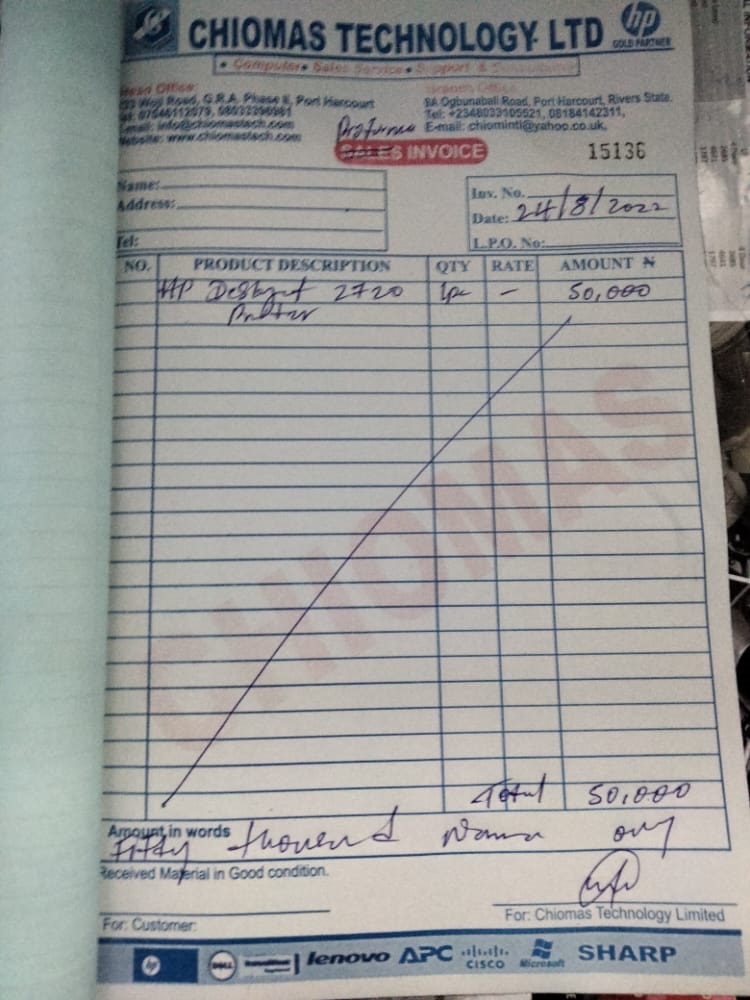 CHIOMAS TECHNOLOGY LTD
hp
GOLD PARTNER
• Computer • Sales Service • Support & Consultants
Head Office:
Woji Road, G.R.A. Phase II, Port Harcourt
E-mail: info@chiomastech.com
Website: www.chiomastech.com
Branch Office:
9A Ogbunabali Road, Port Harcourt, Rivers State.
Tel: +2348033105521, 08184142311,
E-mail: chiomintl@yahoo.co.uk,
Proforma
SALES INVOICE
15136
Name:
Address:
Tel:
Inv. No.
Date: 24/8/2022
L.P.O. No:
NO. PRODUCT DESCRIPTION QTY RATE AMOUNT ₦
HP Deskjet 2720 1pc – 50,000
Printer
CHIOMAS
Total 50,000
Amount in words
Fifty thousand Naira only
Received Material in Good condition.
For: Customer:
For: Chiomas Technology Limited
hp DELL lenovo APC CISCO Microsoft SHARP